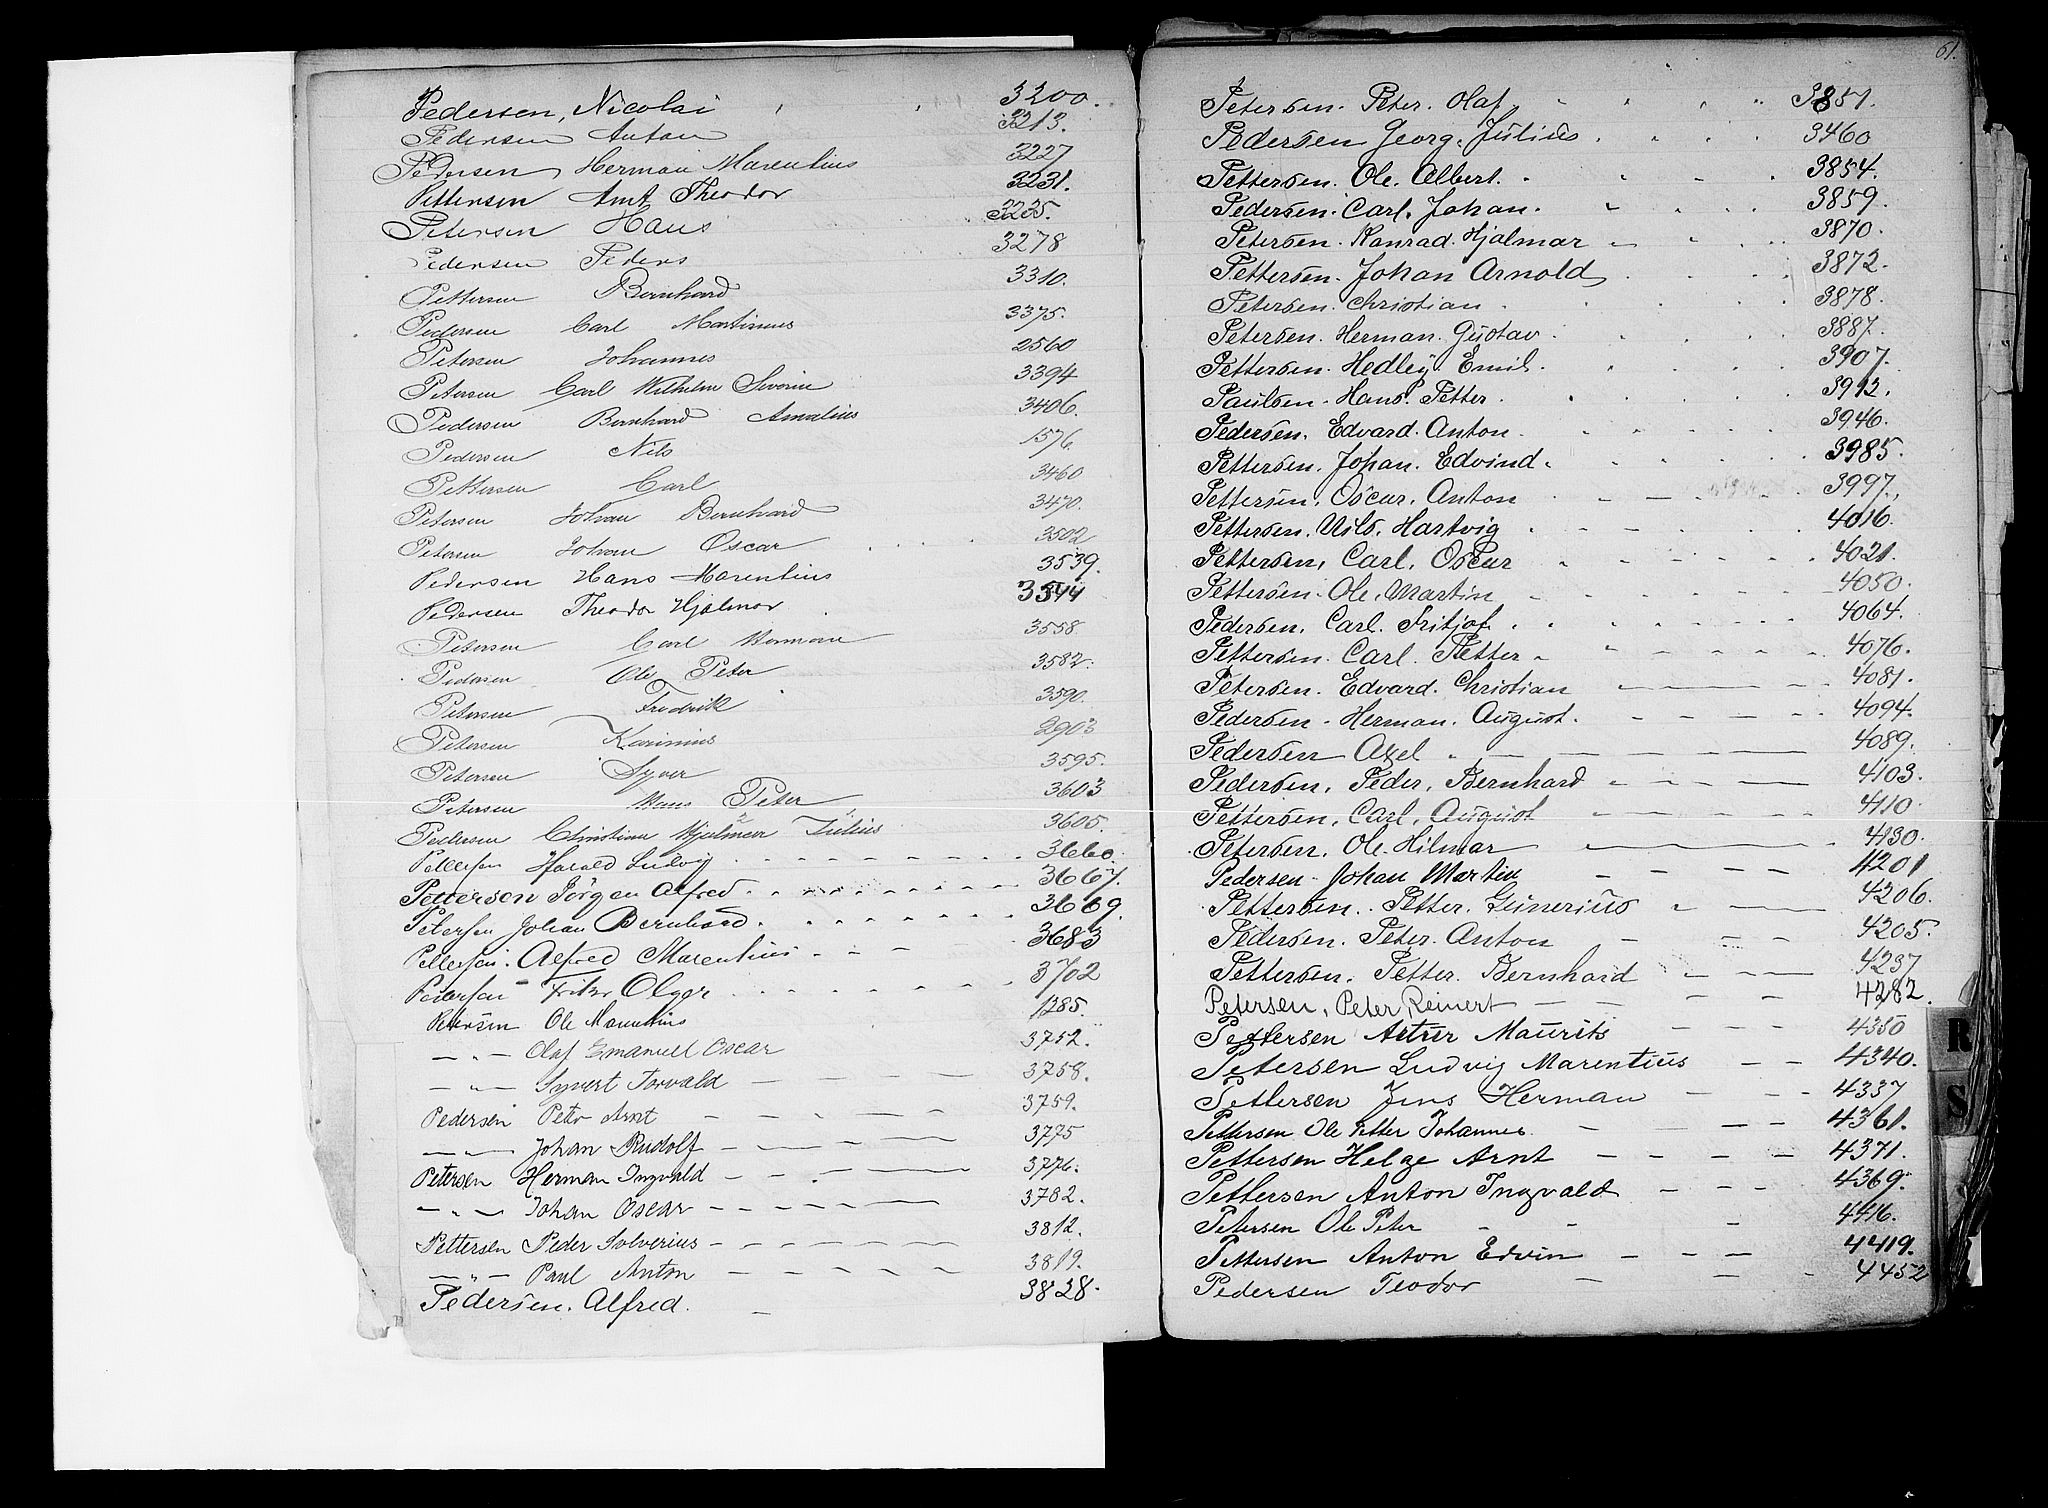 Pedersen, Nicolai 3200.
Pedersen Anton 3213.
Pedersen Herman Marentius 3227
Pettersen Arnt Theodor 3231.
Petersen Hans 3235.
Pedersen Peders 3278
Pettersen Bernhard 3310.
Pedersen Carl Martinius 3375.
Petersen Johannes 2560
Petersen Carl Wilhelm Severin 3394
Pedersen Bernhard Amalius 3406.
Pedersen Nils 1576.
Pettersen Carl 3460
Petersen Johan Bernhard 3470.
Petersen Johan Oscar 3502
Pedersen Hans Marentius 3539.
Pedersen Theodor Hjalmar 3544
Petersen Carl Herman 3558.
Pedersen Ole Peter 3582.
Petersen Fredrik 3590.
Petersen Karinius 2903
Petersen Syver 3595.
Petersen Hans Peter 3603
Pedersen Christian Hjalmar Julius 3605.
Pettersen Harald Ludvig 3660.
Pettersen Jörgen Alfred 3667.
Petersen Johan Bernhard 3669.
Pettersen. Alfred Marentius 3683
Pedersen Fritz Olger 3702
Petersen Ole Marentius 1285.
— " — Olaf Emanuel Oscar 3752.
— " — Syvert Torvald 3758.
Pedersen Petr Arnt 3759.
— " — Johan Rudolf 3775
Petersen Herman Ingvald 3776.
— " — Johan Oscar 3782.
Pettersen Peder Solverius 3812.
— " — Paul Anton 3819.
Pedersen. Alfred. 3828.
61.
Petersen. Peter. Olaf 3851.
Pedersen Georg. Julius 3460
Pettersen. Ole. Albert. 3854.
Pedersen. Carl. Johan. 3859.
Petersen. Konrad. Hjalmar 3870.
Pettersen. Johan Arnold 3872.
Petersen. Christian 3878.
Petersen. Herman. Gustav 3887.
Pettersen. Hedley. Emil. 3907.
Paulsen. Hans. Petter. 3912.
Pedersen. Edvard. Anton. 3946.
Pettersen. Johan. Edvind. 3985.
Pettersen. Oscar. Anton 3997.
Pettersen. Nils. Hartvig 4016.
Pettersen. Carl. Oscar 4021.
Pettersen. Ole. Martin 4050.
Pedersen. Carl. Fritjof. 4064.
Pettersen. Carl. Petter 4076.
Petersen. Edvard. Christian 4081.
Pedersen. Herman. August. 4094.
Pedersen Axel 4089.
Pedersen. Peder. Bernhard 4103.
Pettersen. Carl. August 4110.
Petersen. Ole. Hilmar 4130.
Pedersen Johan Martin 4201
Pettersen. Petter. Gunerius 4206.
Pedersen. Peter. Anton 4205.
Pettersen. Petter. Bernhard 4237
Petersen, Peter, Reinert 4282.
Pettersen Artur Maurits 4330
Petersen Ludvig Marentius 4340.
Pettersen Jens Herman 4337
Pettersen Ole Petter Johannes. 4361.
Pettersen Helge Arnt 4371.
Pettersen Anton Ingvald 4369.
Petersen Ole Peter 4416.
Pettersen Anton Edvin 4419.
Pedersen Teodor 4452
R
S